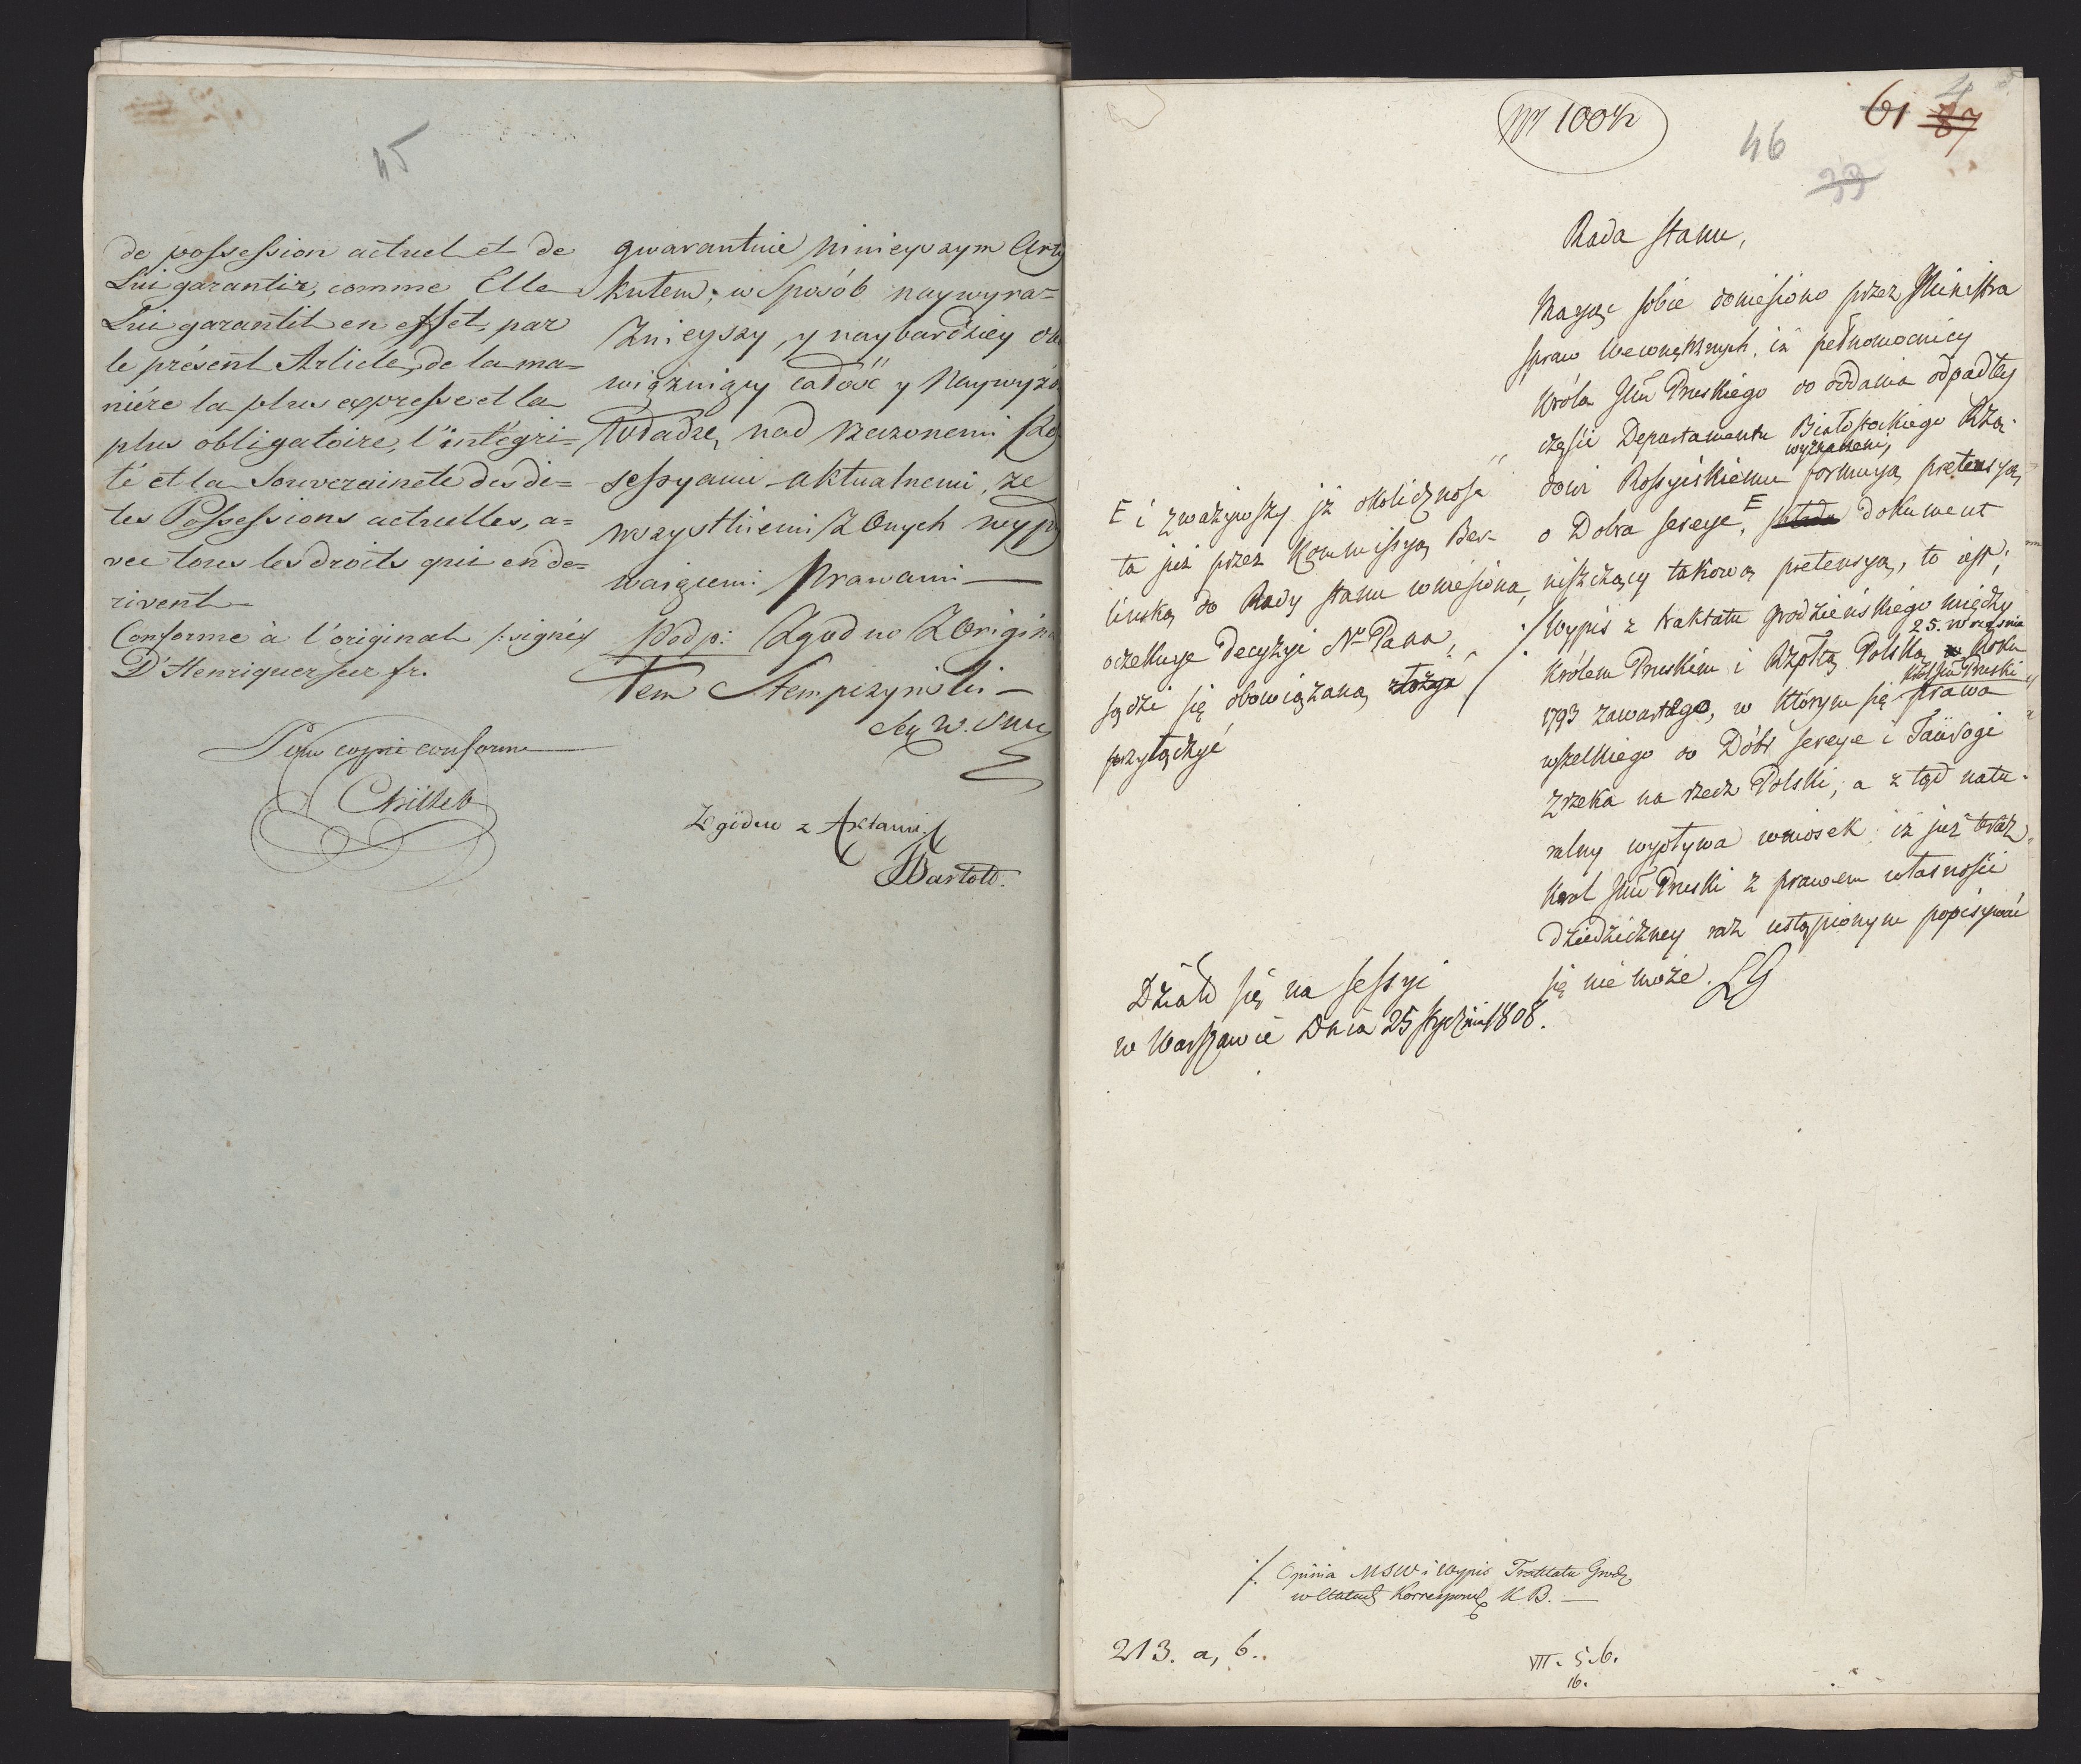 45
de possession actuel et de
Lui garantir, comme Elle
Lui garantit en effet, par
le présent Article, de la ma=
niére la plus expresse et la
plus obligatoire, l'intégri=
té et la Souveraineté des di=
tes Possessions actuelles, a=
vec tous les droits qui en dé=
rivent
Conforme à l'original /:signé/
D'Henriquez
Pour copie conforme
gwarantuie ninieyszym Arty
kułem, w Sposób naywyra=
źnieyszy, y naybardziey obo
wiązuiący całość y Naywyższ
Władzę, nad rzeczonemi Pos
sessyami aktualnemi, ze
wszystkiemi z Onych wypły
waiącemi Prawami
Podp: Zgodno z Origin
Zgodno z Aktami
Bartold.
Nr 1004
46
61 87
33
4
Rada Stanu,
Maiąc sobie doniesiono przez Ministra
spraw Wewnętrznych, iż pełnomocnicy
Króla Jmci Pruskiego do oddania odpadłey
części Departamentu Białostockiego Rzą-
wyznaczeni,
dowi Rossyiskiemu formuią pretensyą
o Dobra Sereye, E składa dokument
niszczący takową pretensyą, to iest;
Wypis z traktatu Grodzieńskiego między
25. Września
Królem Pruskim i Rzpltą Polską w Roku
Król Jmć Pruski
1793 zawartego, w którym się prawa
wszelkiego do Dóbr Sereye i Taurogi
zrzeka na rzecz Polski; a z tąd natu-
ralny wypływa wniosek, iż już teraz
Krol Jmć Pruski z prawem własności
dziedziczney raz ustąpionym popisywać
się nie może. LG
E i zważywszy iż okoliczność
ta już przez Kommissyą Ber-
lińską do Rady Stanu wniesiona,
oczekuje Decyzyi N. Pana,
sądzi się obowiązaną złożyć
przyłączyć
Działo się na Sessyi
w Warszawie Dnia 25 stycznia 1808.
/. Opinia MSW i Wypis Traktatu Grodz
w Korrespond K B.
213. a, b..
VII. 5.6.
16.